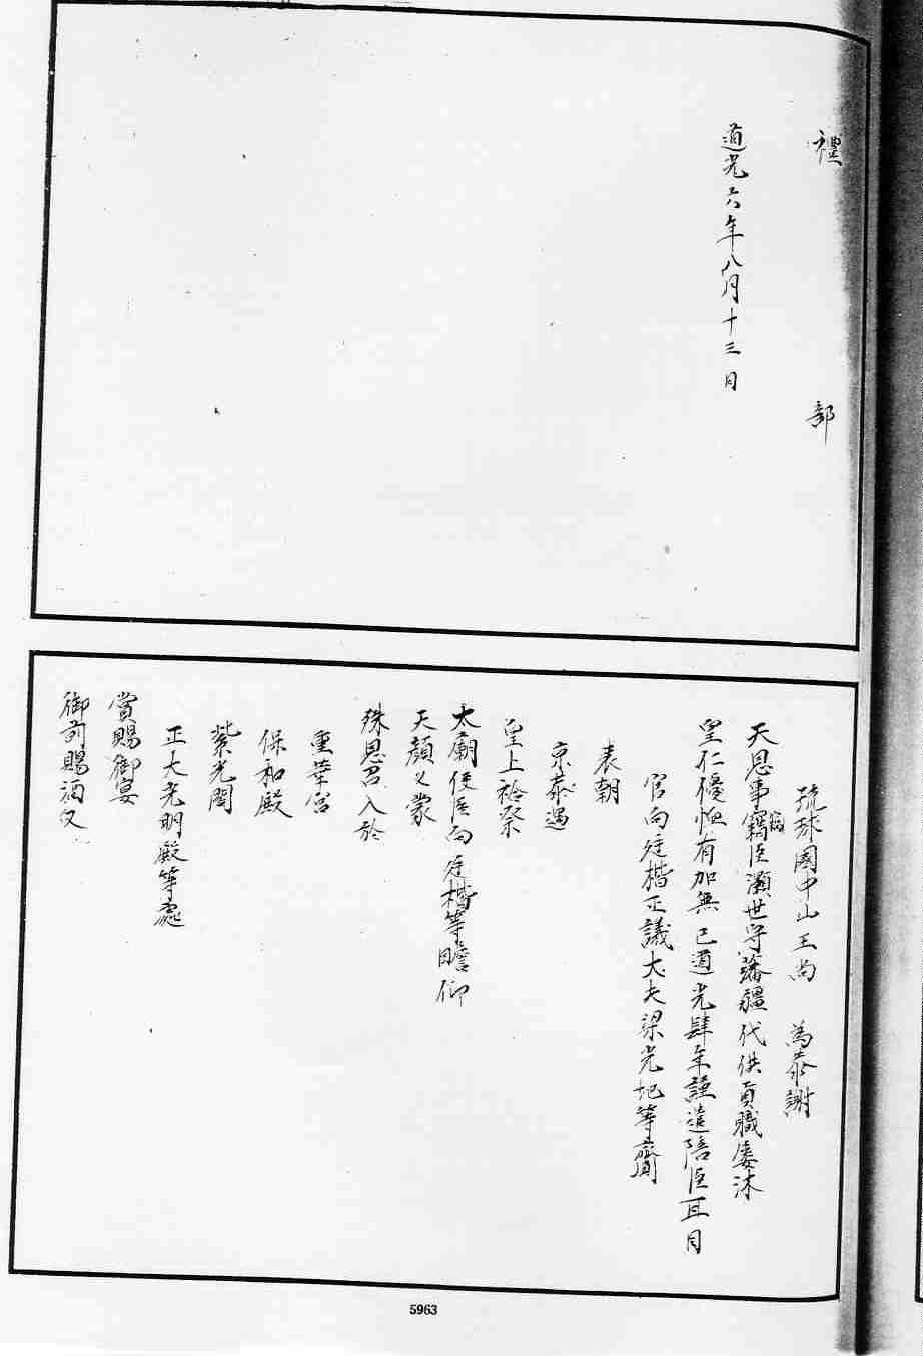 禮 部
道光六年八月十三日
琉球國中山王尚 為恭謝
天恩事竊臣灝世守藩疆代供貢職屢沐
皇仁優恤有加無已道光肆年謹遣陪臣耳目
官向廷楷正議大夫梁光地等齎
表朝
京恭遇
皇上祫祭
太廟使臣向廷楷等瞻仰
天顏又蒙
殊恩召入於
重華宮
保和殿
紫光閣
正大光明殿等處
賞賜御宴
御前賜酒又
5963